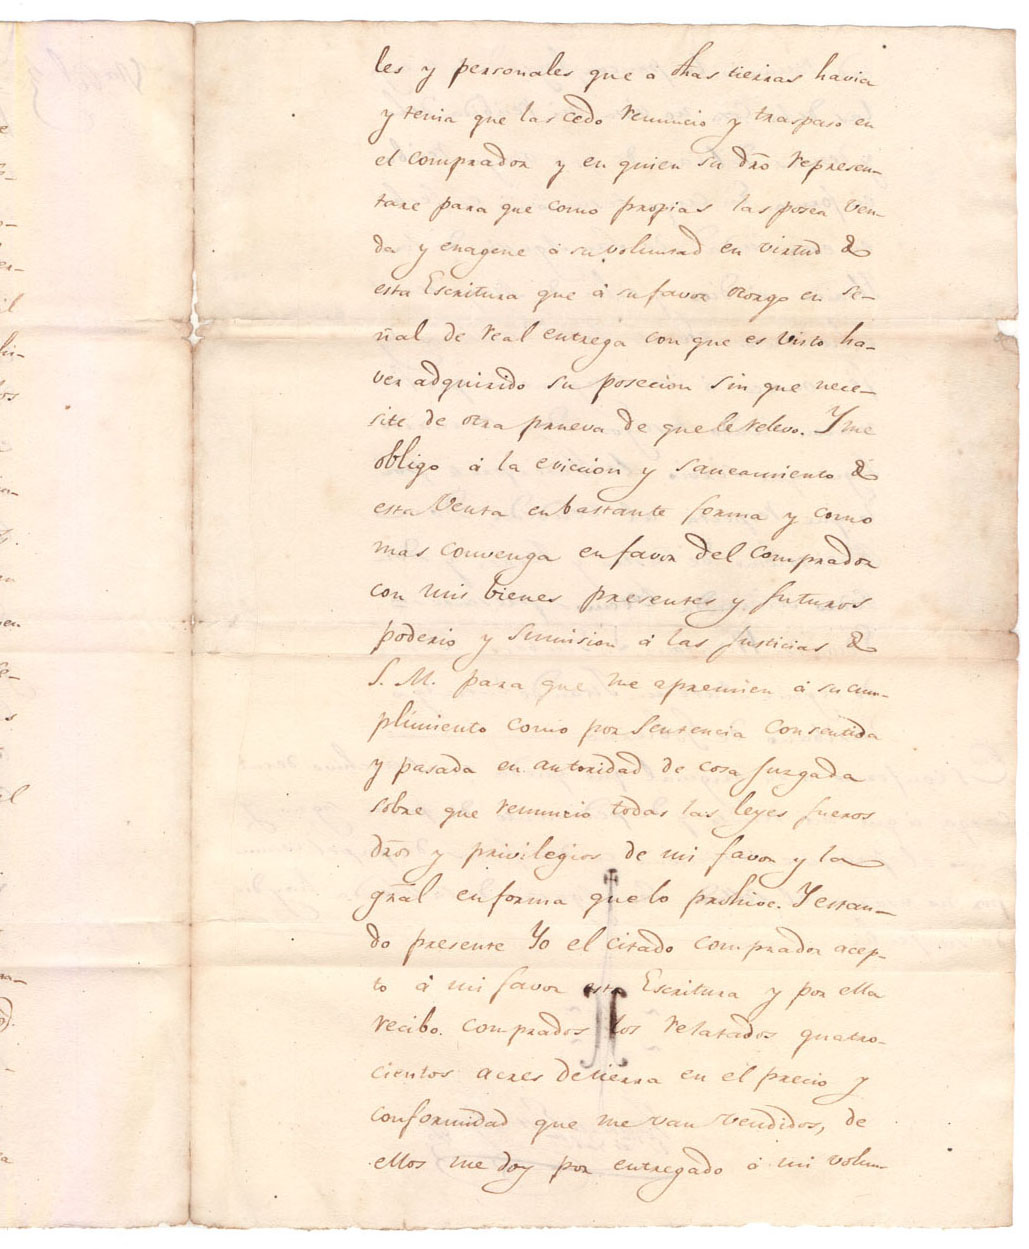 les y personales que a dhas tierras havia
y tenia que las cedo renuncio y traspaso en
el comprador y en quien su dro represen-
tare para que como propias las posea ven-
da y enagene à su voluntad en virtud de
esta Escritura que à su favor otorgo en se-
ñal de real entrega con que es visto ha-
ver adquirido su posecion sin que nece-
site de otra prueva de que le relevo. Y me
obligo à la eviccion y saneamiento de
esta Venta en bastante forma y como
mas convenga en favor del comprador
con mis bienes presentes y futuros
poderio y sumision à las Justicias de
S. M. para que me apremien à su cum-
plimiento como por Sentencia consentida
y pasada en autoridad de cosa Juzgada
sobre que renuncio todas las leyes fueros
dros y privilegios de mi favor y la
gral en forma que lo prohive. Y estan-
do presente Yo el citado comprador acep-
to à mi favor esta Escritura y por ella
recibo comprados los relatados quatro-
cientos acres de tierra en el precio y
conformidad que me van vendidos, de
ellos me doy por entregado à mi volun-